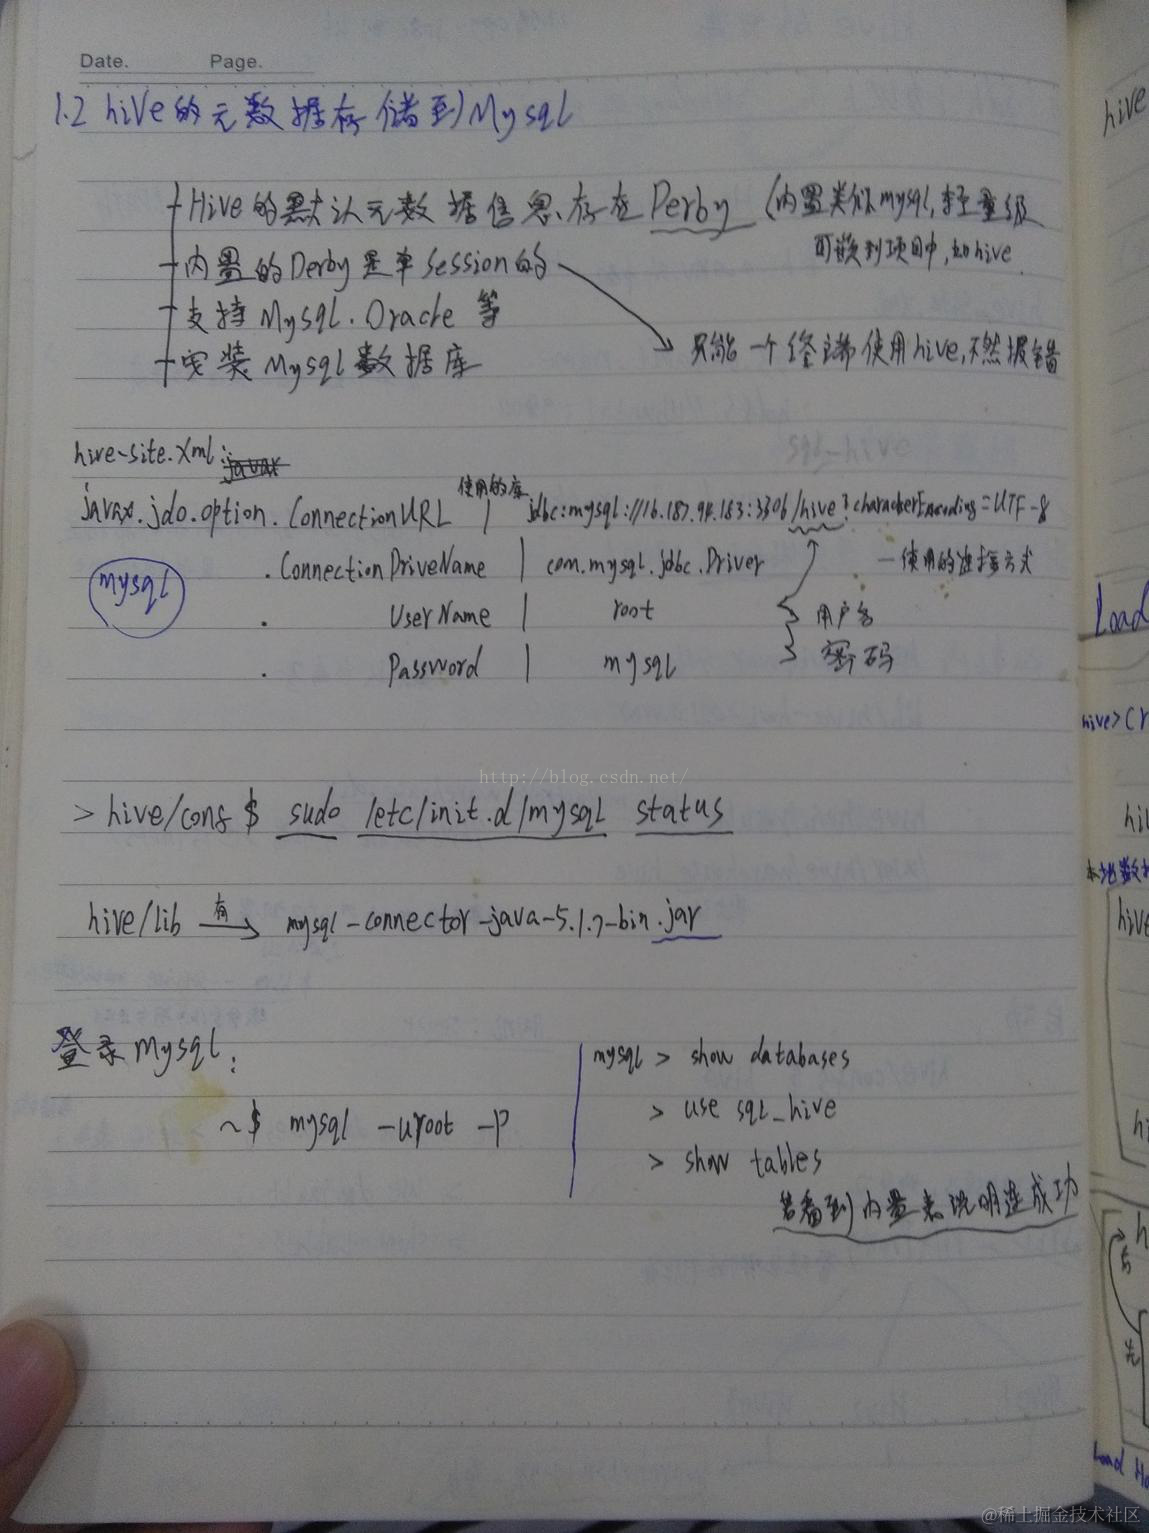 Date. Page.
1.2 hive的元数据存储到Mysql
Hive的默认元数据信息存在Derby (内置类似mysql,轻量级
可嵌到项目中,如hive
内置的Derby是单Session的
支持Mysql.Oracle等
只能一个终端使用hive,不然报错
安装Mysql数据库
hive-site.xml:
使用的库
javax.jdo.option.ConnectionURL | jdbc:mysql://16.187.94.163:3306/hive?characterEncoding=UTF-8
mysql
.ConnectionDriveName | com.mysql.jdbc.Driver —使用的连接方式
. UserName | root 用户名
. Password | mysql 密码
http://blog.csdn.net/
> hive/conf $ sudo /etc/init.d/mysql status
hive/lib 有→ mysql-connector-java-5.1.7-bin.jar
登录Mysql:
~$ mysql -uroot -p
mysql > show databases
> use sql_hive
> show tables
若看到内置表说明连成功
hive
Load
hive>Cr
本地数据
hive
有
先
Load
@稀土掘金技术社区